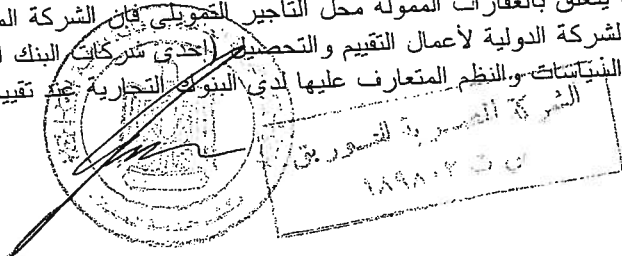 يتعلق بالعقارات الممولة محل التأجير التمويلي فإن الشركة
لشركة الدولية لأعمال التقييم والتحصيل (احدى شركات البنك
السياسات والنظم المتعارف عليها لدى البنوك التجارية عند تقييم
الشركة المصرية للتوريق
س ت ١٨٩٨٠٢